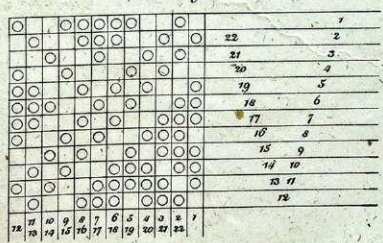 1
22 2
21 3
20 4
19 5
18 6
17 7
16 8
15 9
14 10
13 11
12
12 11 10 9 8 7 6 5 4 3 2 1
13 14 15 16 17 18 19 20 21 22